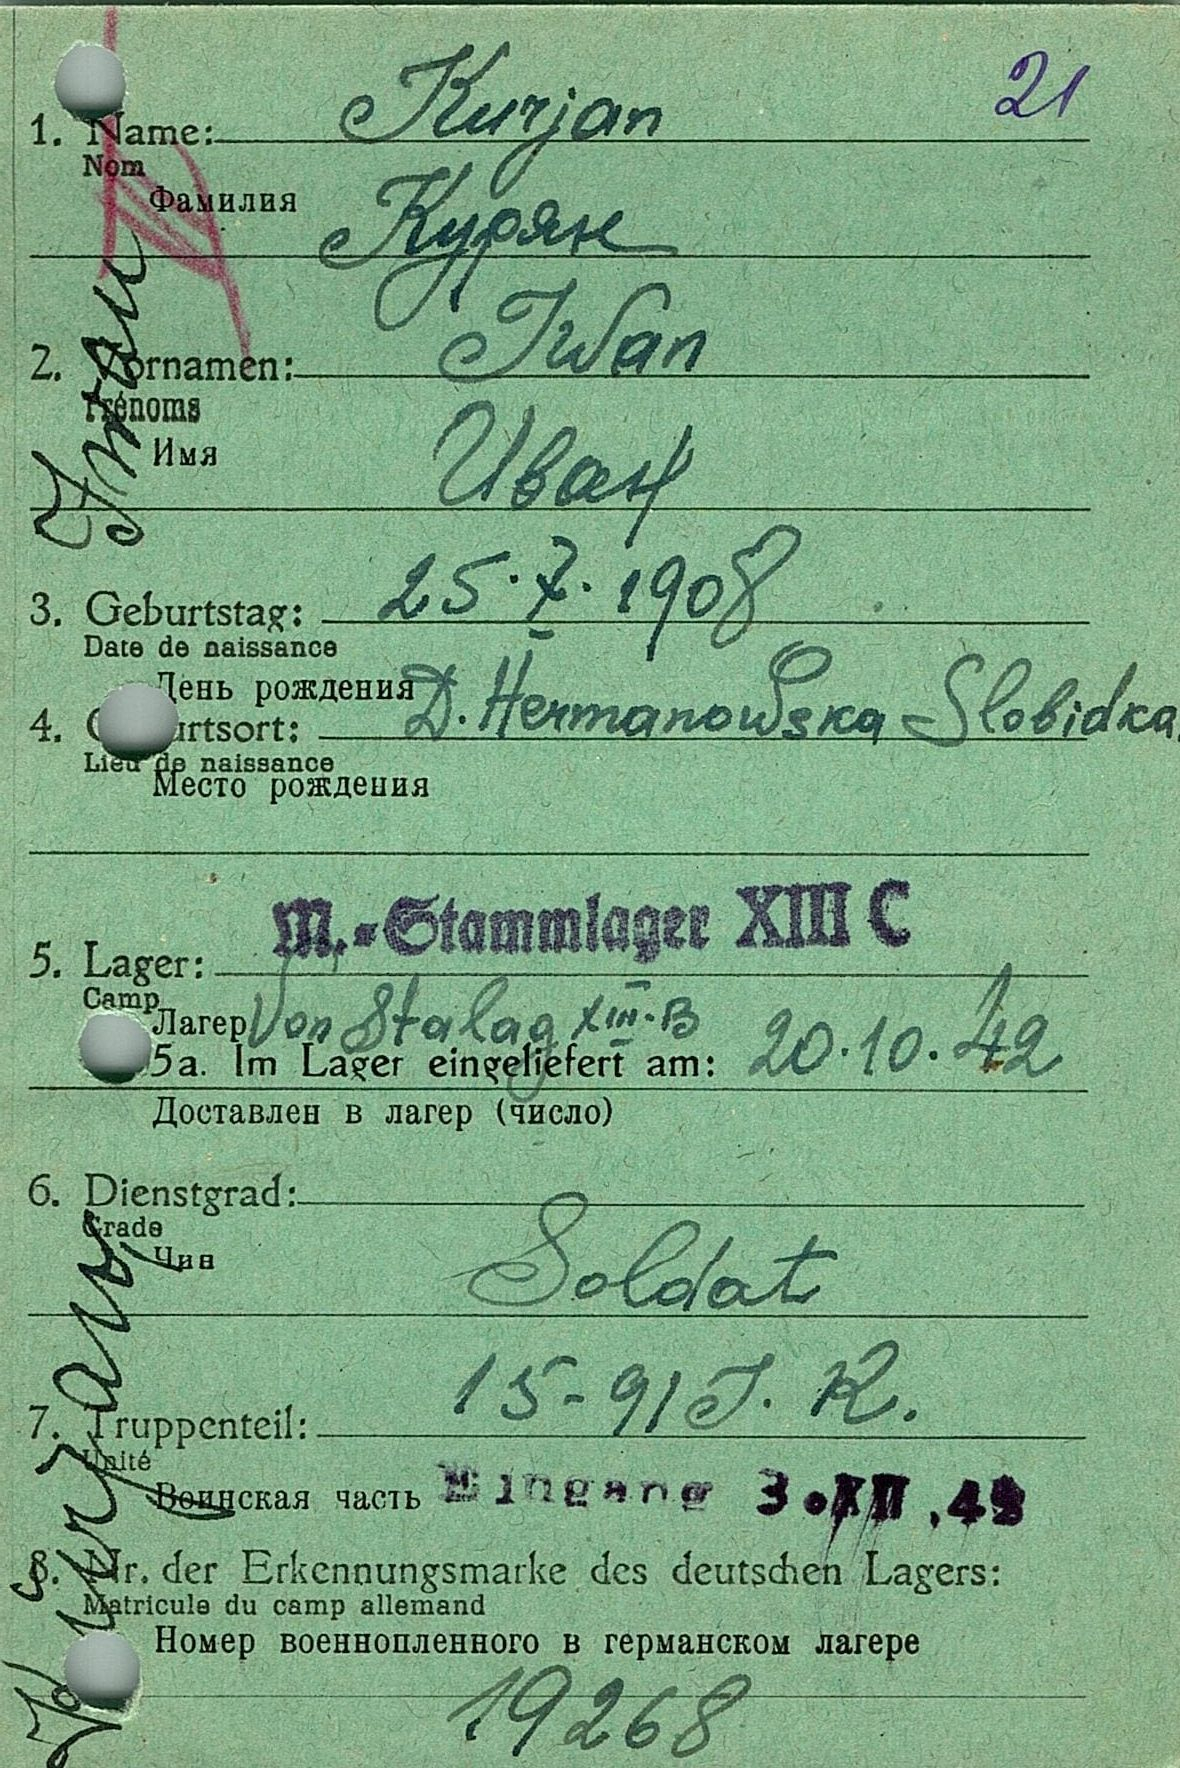 21
1. Name: Kurjan
Nom
Фамилия
Курян
2. Vornamen: Iwan
Prénoms
Имя
Иван
3. Geburtstag: 25.7.1908
Date de naissance
День рождения
4. Geburtsort: D. Hermanowska Slobidka
Lieu de naissance
Место рождения
M.-Stammlager XIII C
5. Lager:
Camp
Лагер Von Stalag XIII-B
5a. Im Lager eingeliefert am: 20.10.42
Доставлен в лагер (число)
6. Dienstgrad:
Grade
Чин
Soldat
7. Truppenteil: 15-91 J. R.
Unité
Воинская часть Eingang 3.XII.42
8. Nr. der Erkennungsmarke des deutschen Lagers:
Matricule du camp allemand
Номер военнопленного в германском лагере
19268
Iwan